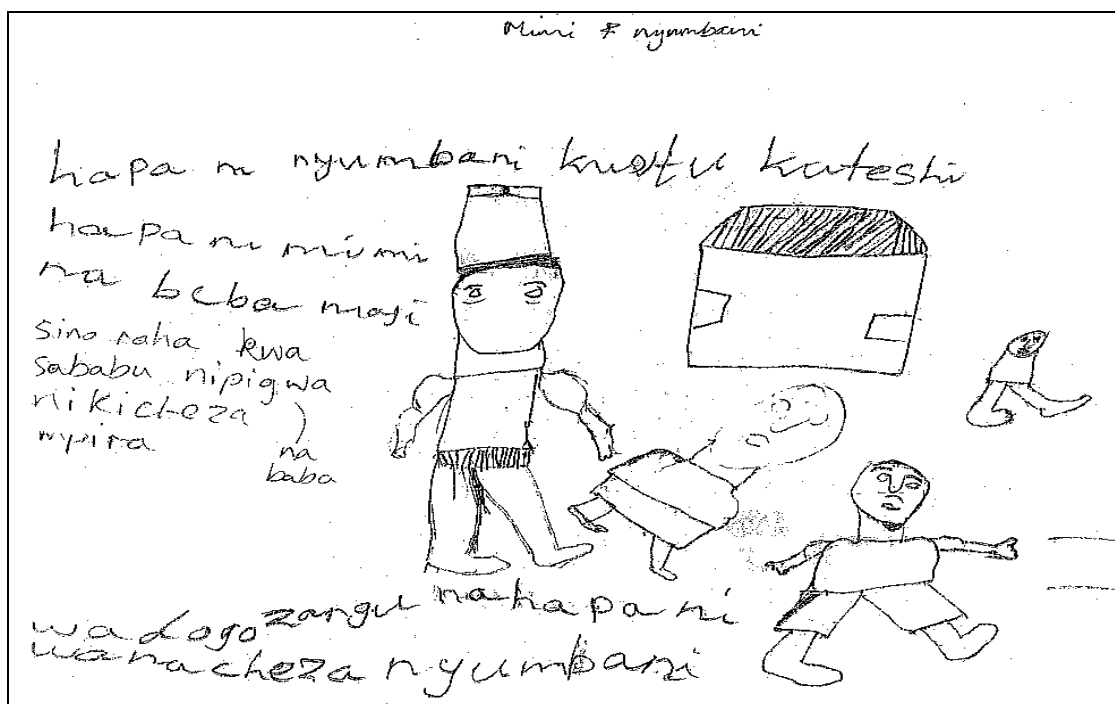 Mimi & nyumbani
hapa ni nyumbani kwetu kateshi
hapa ni mimi
na beba maji
sina raha kwa
sababu nipigwa
nikicheza )
mpira
na
baba
wadogo zangu na hapa ni
wanacheza nyumbani